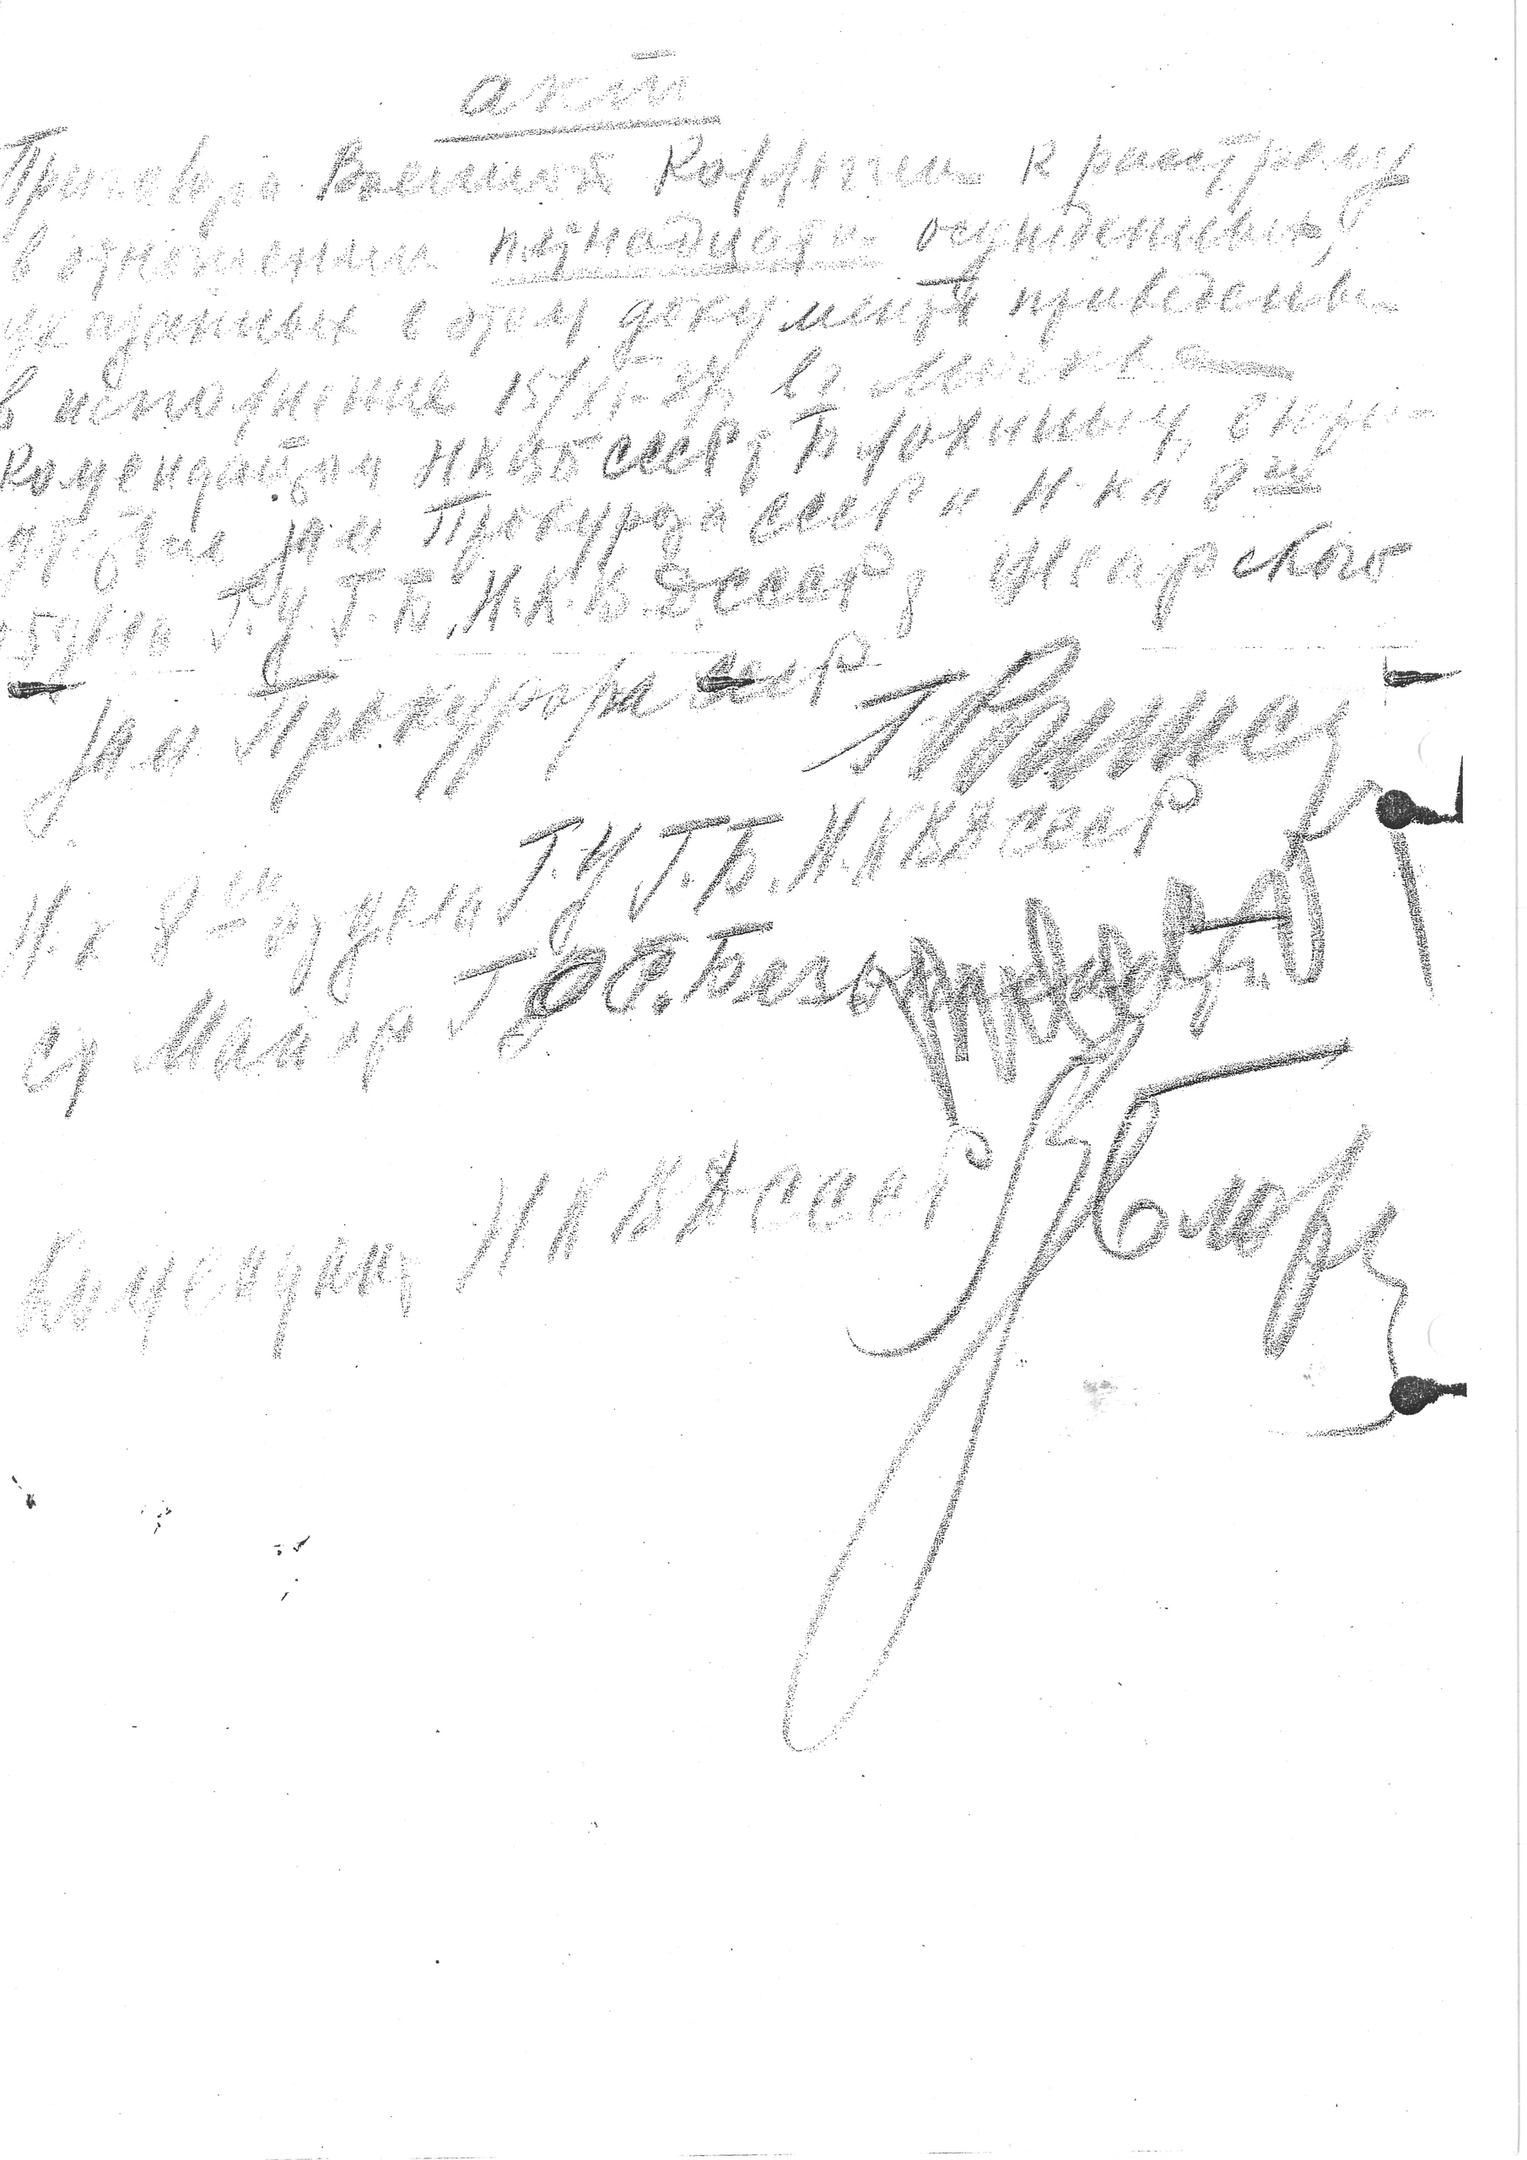 акт
Приговора Военной Коллегии к расстрелу
в отношении пятнадцати осужденных,
указанных в этом документе приведены
в исполнение 15/XI-37 в г. Москве
Комендантом НКВД СССР т Блохиным, в при-
сутствии зам Прокурора СССР и Н-ка 8го
отдела Г.У.Г.Б. Н.К.В.Д СССР т Цесарского
Зам Прокурора СССР Г Рогинс
Н-к 8го отдела Г.У Г.Б. Н.КВД СССР
Ст Майор Гос. Безопасности
Комендант НКВД СССР Блохин